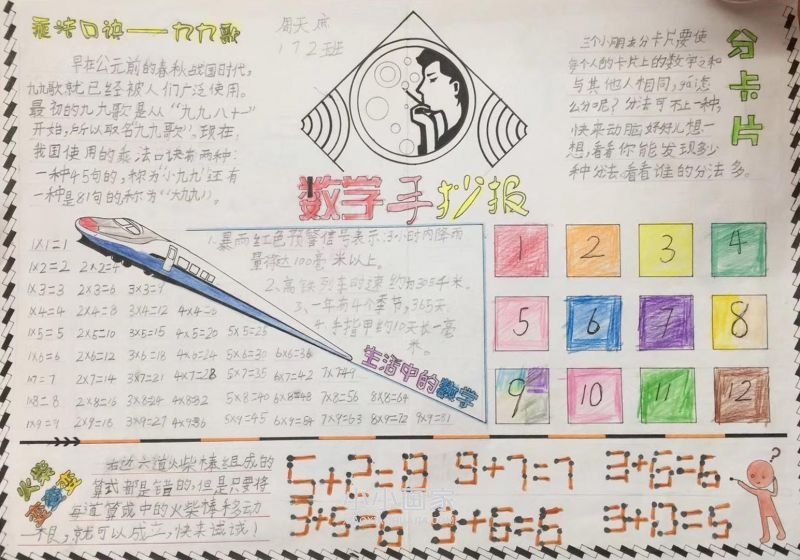 乘法口诀——九九歌
早在公元前的春秋战国时代,
九九歌就已经被人们广泛使用。
最初的九九歌是从“九九八十一”
开始,所以取名“九九歌”。现在,
我国使用的乘法口诀有两种:
一种45句的,称为“小九九”还有
一种是81句的,称为“大九九”。
周天
172班
数学手抄报
分卡片
三个小朋友分卡片要使
每个人的卡片上的数字之和
与其他人相同,
公分呢?分法可不止一种,
快来动脑好好儿想一
想,看看你能发现多少
种分法,看看谁的分法多。
1、暴雨红色预警信号表示:3小时内降雨
量将达100毫米以上。
2、高铁列车时速约为305千米。
3、一年有4个季节,365天。
4、手指甲约10天长一毫
米。
生活中的数学
1×1=1
1×2=2 2×2=4
1×3=3 2×3=6 3×3=9
1×4=4 2×4=8 3×4=12 4×4=16
1×5=5 2×5=10 3×5=15 4×5=20 5×5=25
1×6=6 2×6=12 3×6=18 4×6=24 5×6=30 6×6=36
1×7=7 2×7=14 3×7=21 4×7=28 5×7=35 6×7=42 7×7=49
1×8=8 2×8=16 3×8=24 4×8=32 5×8=40 6×8=48 7×8=56 8×8=64
1×9=9 2×9=18 3×9=27 4×9=36 5×9=45 6×9=54 7×9=63 8×9=72 9×9=81
1 2 3 4
5 6 7 8
9 10 11 12
火柴
右边六道火柴棒组成的
算式都是错的,但是只要将
每道算式中的火柴棒移动
一根,就可以成立,快来试试!
5+2=8 9+7=1 3+6=6
3+5=6 9+6=6 3+0=5
?
小小画家